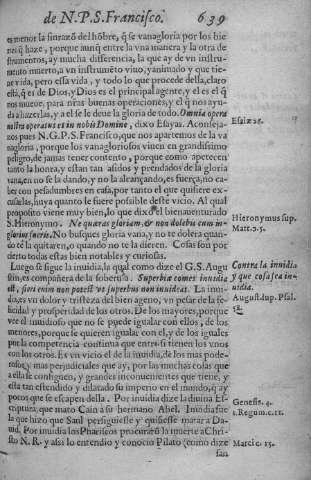 de N.P.S. Francisco. 639
es menor la sinrazō del hōbre, q̃ se vanagloria por los bie
nes q̃ haze, porque aunq̃ entre la vna manera y la otra de
instrumentos, ay mucha differencia, la que ay de vn instru-
mento muerto, a vn instrumēto viuo, y animado y que tiene
vida, pero essa vida, y todo lo que procede della, claro
està, q̃ es de Dios, y Dios es el principal agente, y el es el q̃
nos mueue para nr̃as buenas operaciones, y el q̃ nos ayu-
da a hazerlas, y a el se le deue la gloria de todo. Omnia opera
nostra operatus es in nobis Domine, dixo Esayas. Aconseja-
nos pues N.G.P.S. Francisco, que nos apartemos de la va
nagloria, porque los vanagloriosos viuen en grandissimo
peligro, de jamas tener contento, porque como apetecen
tanto la honra, y estàn tan asidos y prendados de la gloria
vana, en no se la dando, y no la alcançando, es fuerça, no ca-
ber con pesadumbres en casa, por tanto el que quisiere ex-
cusarlas, huya quanto le fuere possible deste vicio. Al qual
proposito viene muy bien, lo que dixo el bienauenturado
S. Hieronymo. Ne quæras gloriam, & non dolebis cum in-
glorius fueris. No busques gloria vana, y no te dolera quan-
do te la quitaren, o quando no te la dieren. Cosas son por
cierto todas estas bien notables y curiosas.
Luego se sigue la inuidia, la qual como dize el G.S. Augu
stin, es compañera de la soberuia. Superbiæ comes inuidia
est, fieri enim non potest vt superbus non inuideat. La inui-
dia, es vn dolor y tristeza del bien ageno, vn pesar de la fe-
licidad y prosperidad de los otros. De los mayores, porque
vee el inuidioso que no se puede igualar con ellos, de los
menores, porque le quieren igualar con el, y de los iguales
por la competencia continua que entre si tienen los vnos
con los otros. Es vn vicio el de la inuidia, de los mas pode-
rosos, y mas perjudiciales que ay, por las muchas cosas que
a ella se consiguen, y grandes inconuenientes que tiene, y
està tan estendido y dilatado su imperio en el mundo, q̃ ay
pocos que se escapen della. Por inuidia dize la diuina Es-
criptura, que mato Cain à su hermano Abel. Inuidia fue
la que hizo que Saul persiguiesse y quisiesse matar a Da-
uid. Por inuidia los Phariseos procurarō la muerte a Chri-
sto N.R. y assi lo entendio y conocio Pilato (como dize
san
Esaiæ 26.
Hieronymus sup.
Matt.
Contra la inuidia
y que cosa sea in-
uidia.
August. sup. Psal.
Genesis. 4.
1. Regum. c.
Marci c. 15.